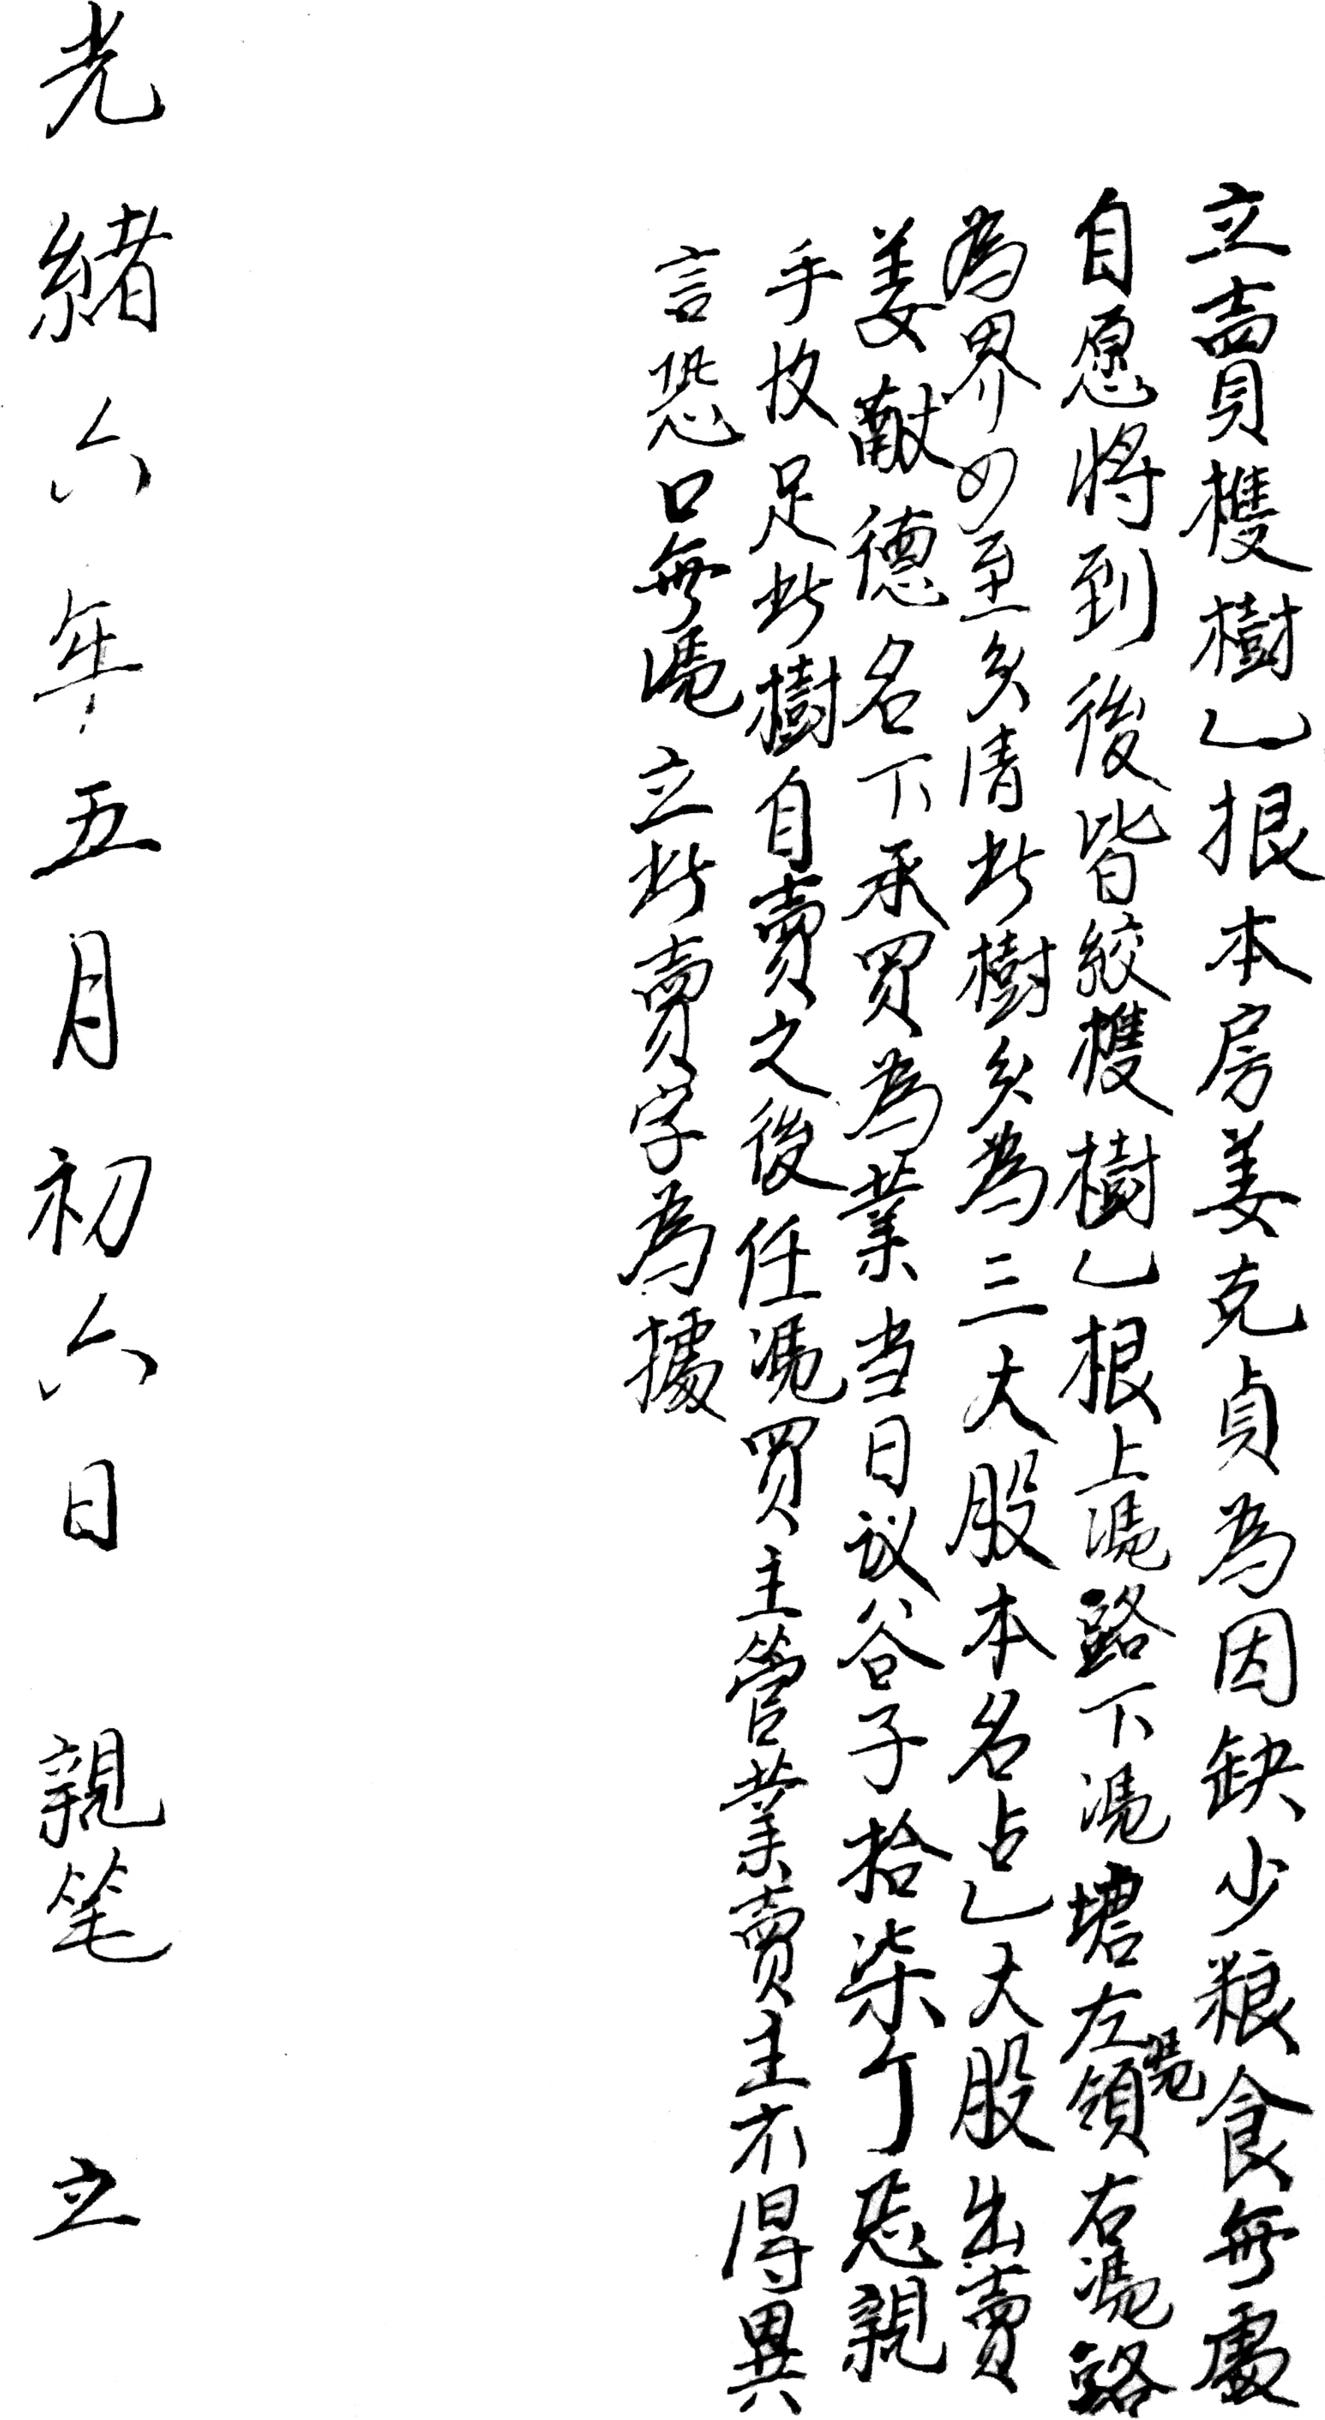 立賣檴樹乚根本房姜克貞為因缺少粮食無處
自愿將到後皆絞檴樹乚根上慿路下慿塘左慿領右慿路
為界四至分清此樹分為三大股本名占乚大股出賣
姜献德名下承買為業当日议谷子拾柒斤親
手收足此樹自賣之後任慿買主管業賣主不得異
言恐口無慿立此賣字為據
光緒六年五月初六日 親笔 立